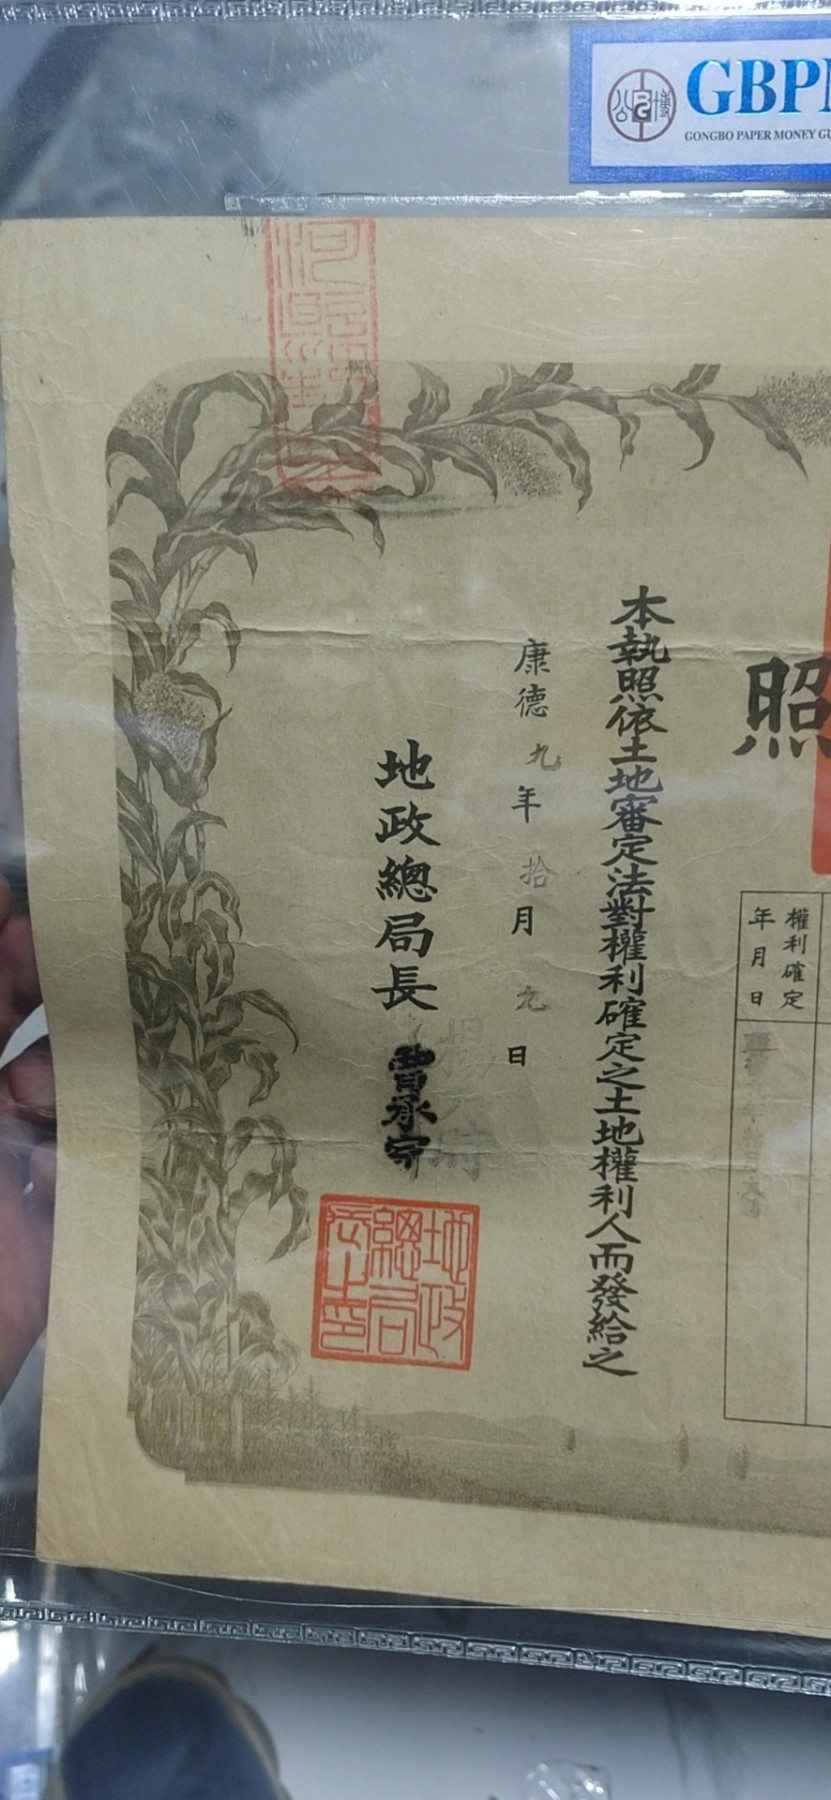 GBP
GONGBO PAPER MONEY GU
照
權利確定
年月日
本執照依土地審定法對權利確定之土地權利人而發給之
康德九年拾月九日
地政總局長
曹承宗
地政
總局
長之印